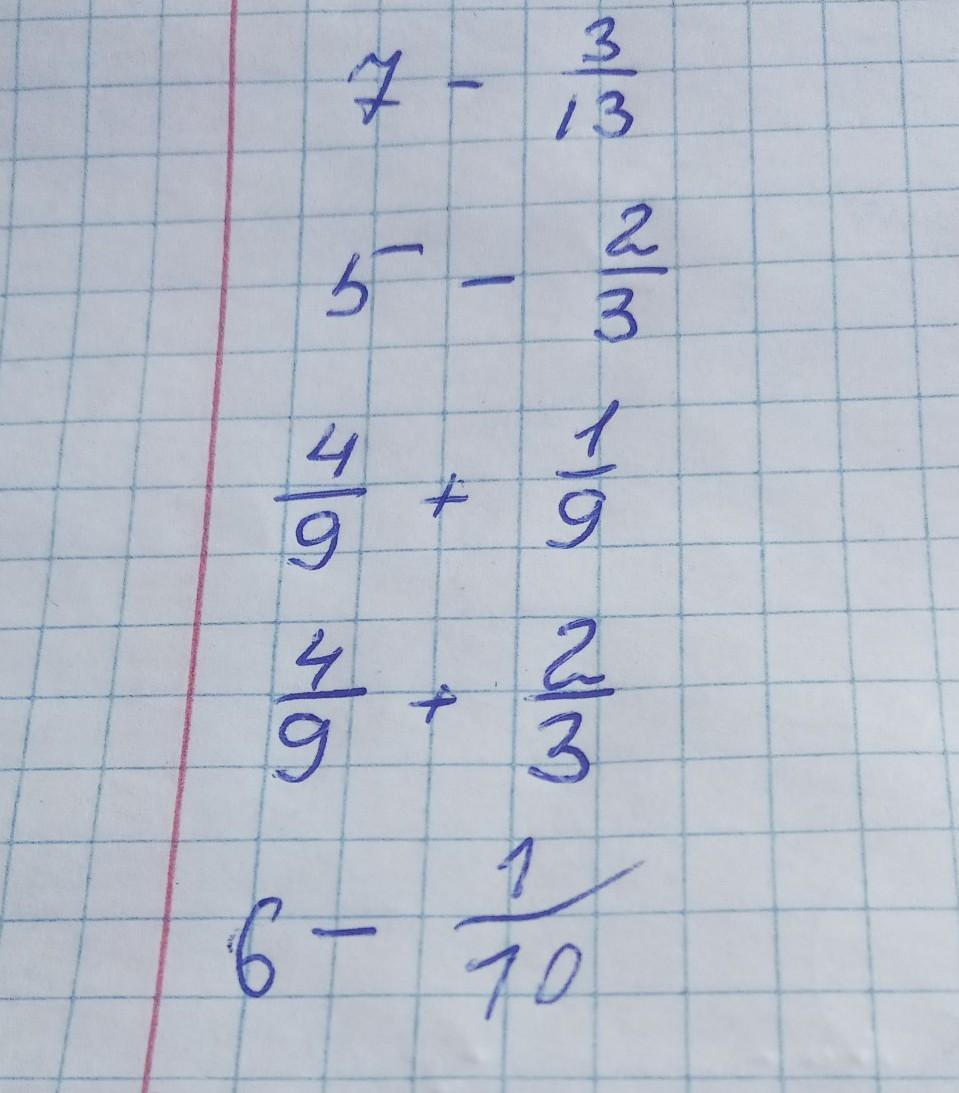 7 - 3/13
5 - 2/3
4/9 + 1/9
4/9 + 2/3
6 - 1/10